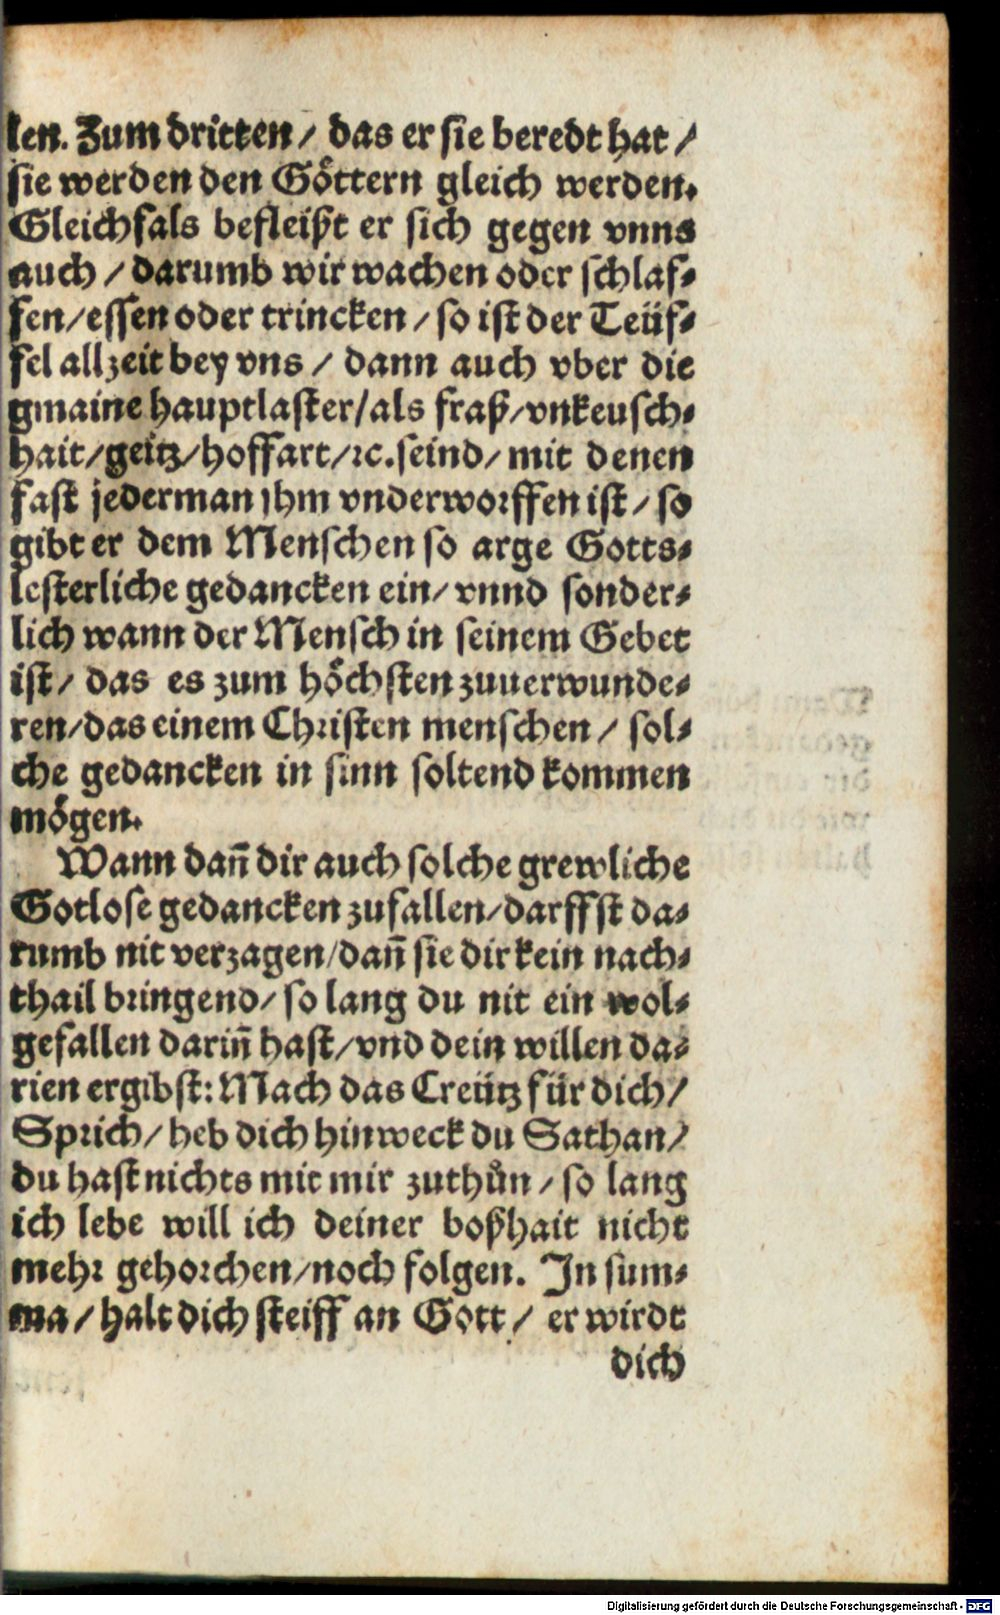 len. Zum dritten / das er sie beredt hat /
sie werden den Göttern gleich werden.
Gleichfals befleißt er sich gegen vnns
auch / darumb wir wachen oder schlaf-
fen/essen oder trincken / so ist der Teüf-
fel allzeit bey vns / dann auch vber die
gmaine hauptlaster/als fraß/vnkeusch-
hait/geitz/hoffart/ꝛc.seind/ mit denen
fast jederman jhm vnderworffen ist / so
gibt er dem Menschen so arge Gotts-
lesterliche gedancken ein/ vnnd sonder-
lich wann der Mensch in seinem Gebet
ist / das es zum höchsten zuuerwunde-
ren/das einem Christen menschen / sol-
che gedancken in sinn soltend kommen
mögen.
Wann dañ dir auch solche grewliche
Gotlose gedancken zufallen/darffst da-
rumb nit verzagen/dañ sie dir kein nach-
thail bringend/ so lang du nit ein wol-
gefallen dariñ hast/vnd dein willen da-
rien ergibst: Mach das Creütz für dich /
Sprich / heb dich hinweck du Sathan /
du hast nichts mit mir zuthůn / so lang
ich lebe will ich deiner boßhait nicht
mehr gehorchen/noch folgen. In sum-
ma / halt dich steiff an Gott / er wirdt
dich
Digitalisierung gefördert durch die Deutsche Forschungsgemeinschaft - DFG